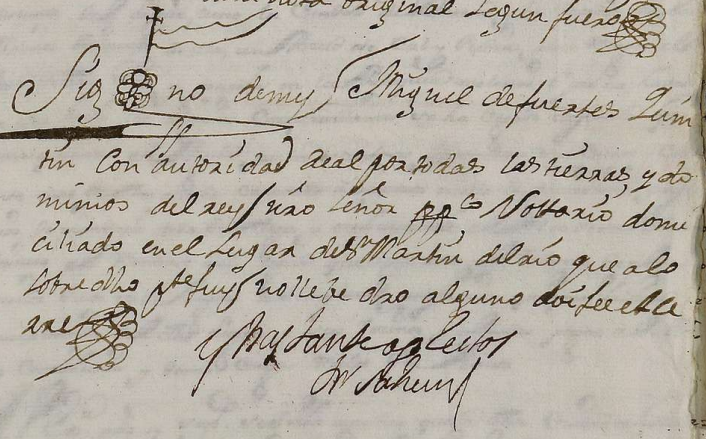 nota original segun fuero
Sig no de my Miguel de fuertes Quin
tin con autoridad Real por todas las tierras y do
minios del rey nro señor ppco Nottario domi
ciliado en el Lugar de Sn Martin del rio que a lo
sobre dho pte fuy no llebe dro alguno doi fee et